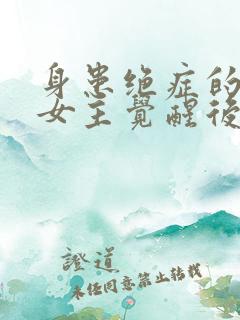 身患绝症的
女主覺醒後
證道
未任同意禁止转载